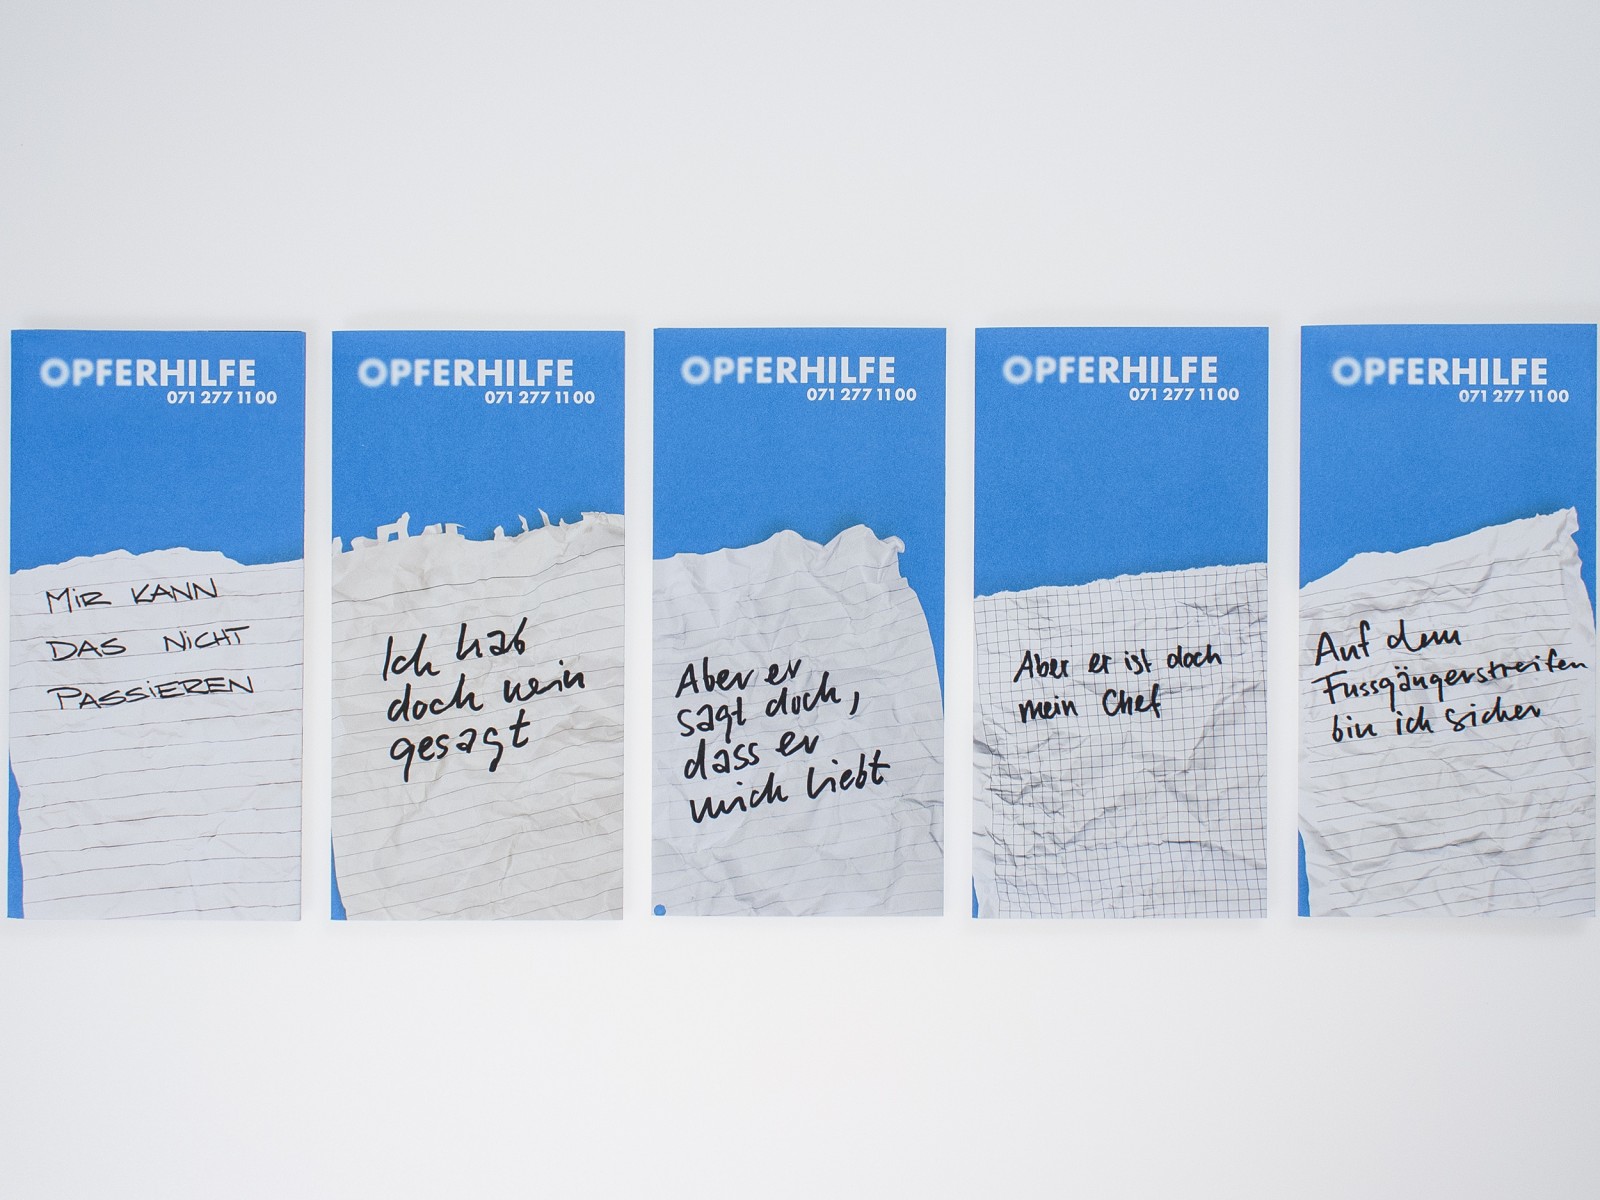 OPFERHILFE
071 277 11 00
MiR KANN
DAS NiCHT
PASSiEREN
OPFERHILFE
071 277 11 00
Ich hab
doch nein
gesagt
OPFERHILFE
071 277 11 00
Aber er
sagt doch,
dass er
mich liebt
OPFERHILFE
071 277 11 00
Aber er ist doch
mein Chef
OPFERHILFE
071 277 11 00
Auf dem
Fussgängerstreifen
bin ich sicher